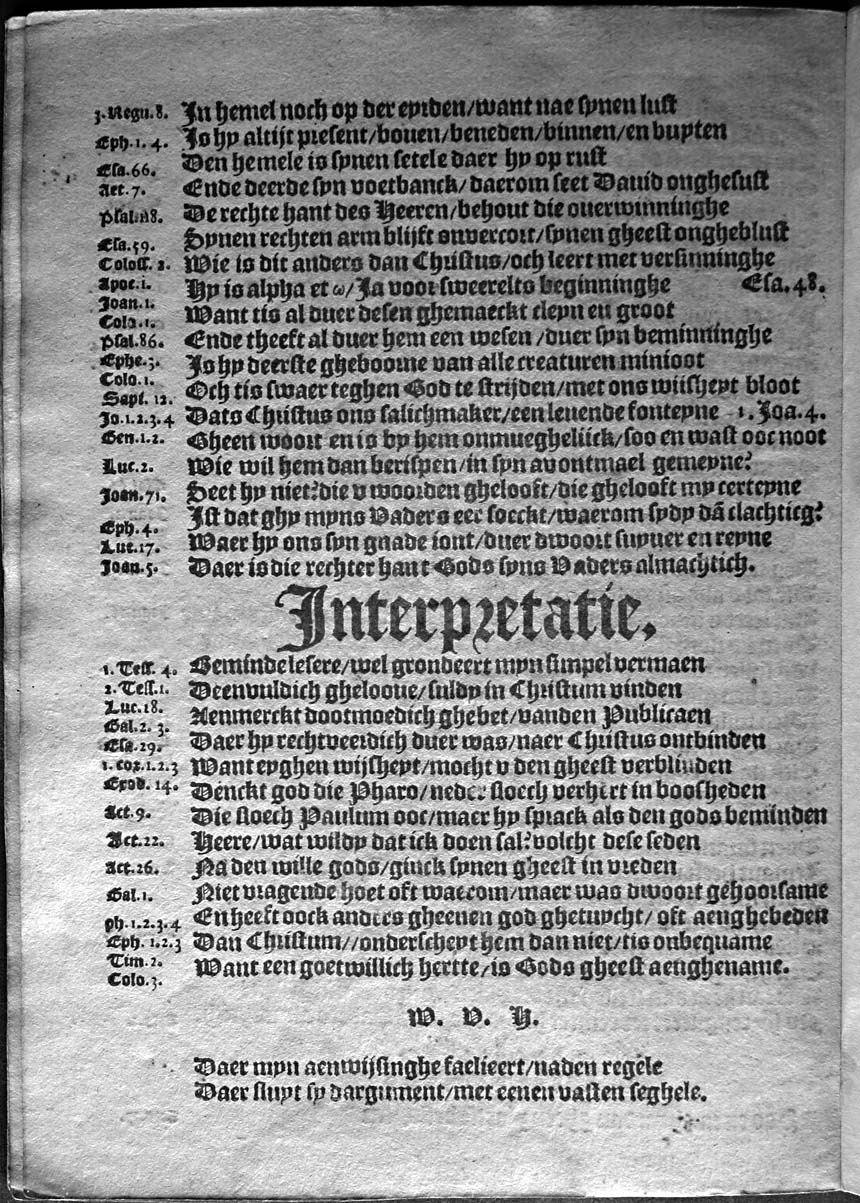 3.Regu.8. In hemel noch op der eyrden/want nae synen lust
Eph.1. 4. Is hy altijt present/bouen/beneden/binnen/en buyten
Esa.66. Den hemele is synen setele daer hy op rust
Act. 7. Ende deerde syn voetbanck/daerom seet Dauid onghesust
Psal.118. De rechte hant des Heeren/behout die ouerwinninghe
Esa.59. Synen rechten arm blijft onvercort/synen gheest ongheblust
Coloss. 2. Wie is dit anders dan Christus/och leert met versinninghe
Apoc.1. Hy is alpha et ω/Ja voor sweerelts beginninghe Esa.48.
Joan.1. Want tis al duer desen ghemaeckt cleyn en groot
Colo.1.
Psal.86. Ende theeft al duer hem een wesen/duer syn beminninghe
Ephe.3. Is hy deerste gheboorne van alle creaturen minioot
Colo.1. Och tis swaer teghen God te strijden/met ons wijsheyt bloot
Sapt. 12.
Jo.1.2.3.4 Dats Christus ons salichmaker/een leuende fonteyne 1.Joa.4.
Gen.1.2. Gheen woort en is by hem onmueghelijck/soo en wast ooc noot
Luc.2. Wie wil hem dan berispen/in syn avontmael gemeyne?
Joan.71. Seet hy niet?die v woorden ghelooft/die ghelooft my certeyne
Ist dat ghy myns Vaders eer soeckt/waerom sydy dā clachtich?
Eph.4.
Luc.17. Waer hy ons syn gnade iont/duer dwoort suyuer en reyne
Joan.5. Daer is die rechter hant Gods syns Vaders almachtich.
Interpretatie.
1. Tess. 4. Beminde lesere/wel grondeert myn simpel vermaen
2. Tess.1. Deenvuldich ghelooue/suldy in Christum vinden
Luc.18. Aenmerckt dootmoedich ghebet/vanden Publicaen
Gal.2. 3.
Esa.29. Daer hy rechtveerdich duer was/naer Christus ontbinden
1. cor.1.2.3 Want eyghen wijsheyt/mocht v den gheest verblinden
Exod. 14. Denckt god die Pharo/neder sloech verhert in boosheden
Act.9. Die sloech Paulum ooc/maer hy sprack als den gods beminden
Act.22. Heere/wat wildy dat ick doen sal?volcht dese seden
Act.26. Na den wille gods/ginck synen gheest in vreden
Gal.1. Niet vragende hoet oft waerom/maer was dwoort gehoorsame
ph.1.2.3.4 En heeft oock anders gheenen god ghetuycht/ oft aenghebeden
Eph. 1.2.3 Dan Christum//onderscheyt hem dan niet/tis onbequame
Tim.2. Want een goetwillich hertte/is Gods gheest aenghename.
Colo.3.
W. V. H.
Daer myn aenwijsinghe faelieert/naden regele
Daer sluyt sy dargument/met eenen vasten seghele.